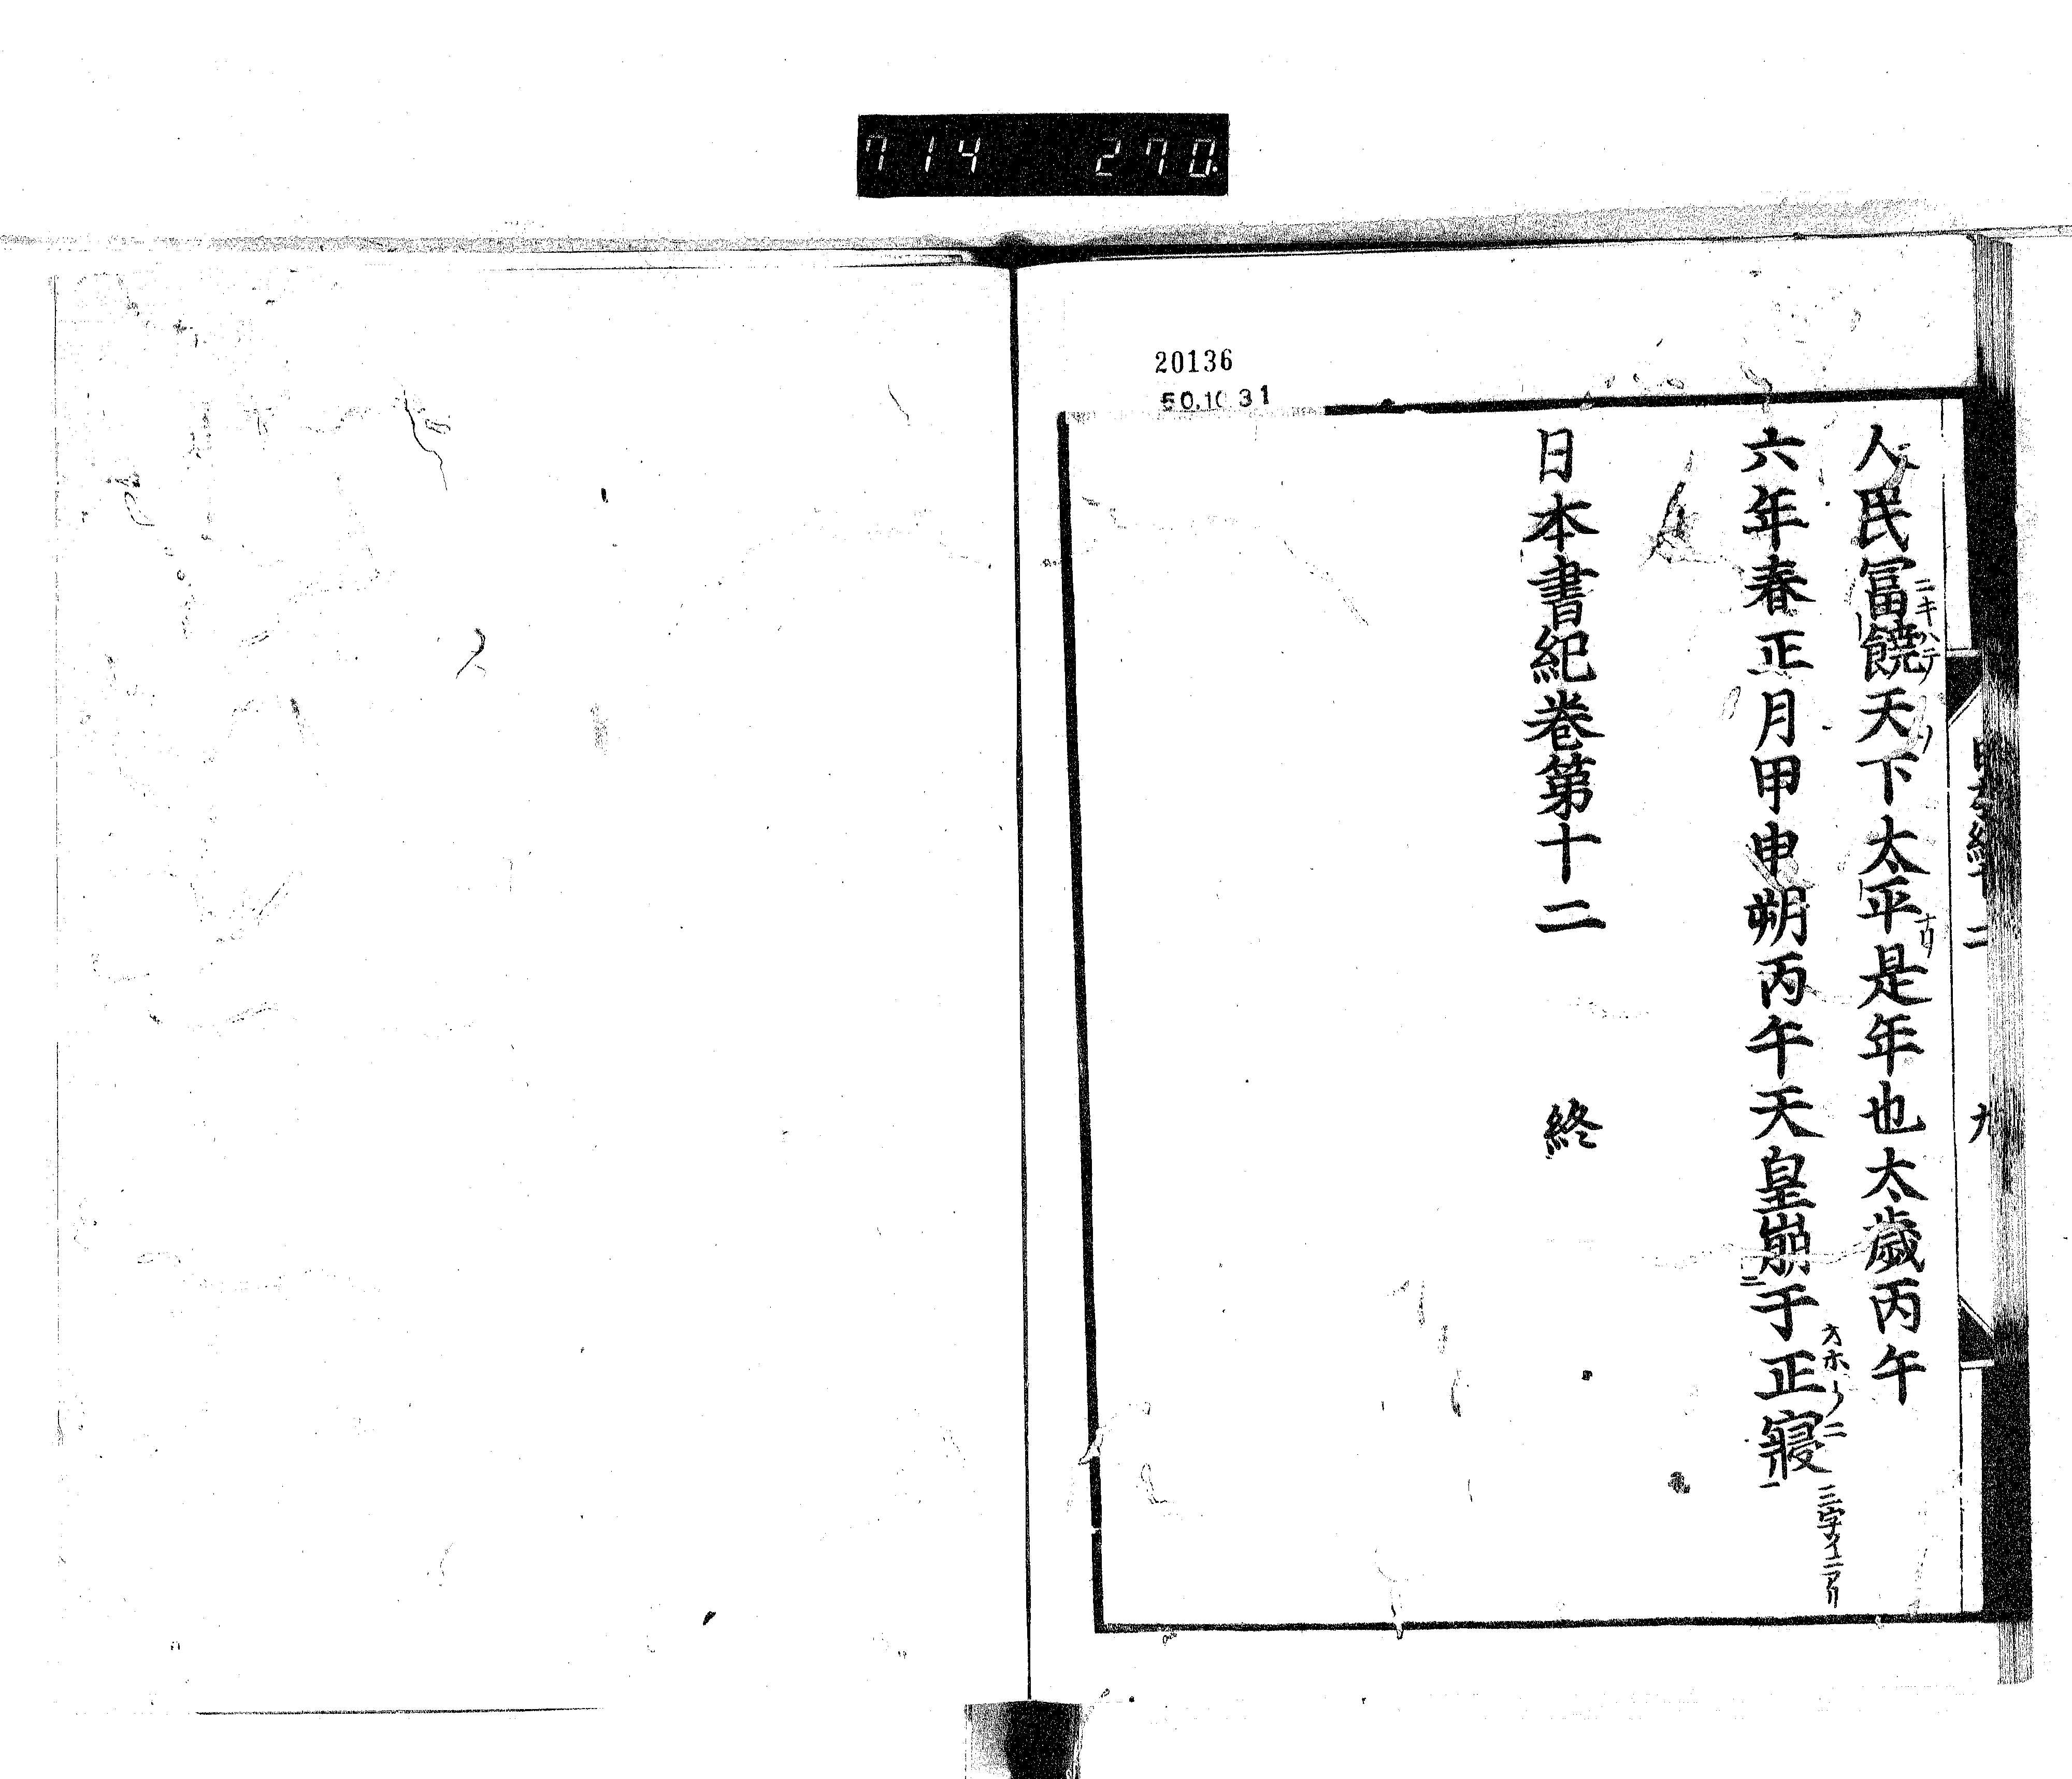 714 270
20136
50.10.31
人民冨饒天下太平是年也太歳丙午
六年春正月甲申朔丙午天皇崩于正寢
日本書紀卷第十二 終